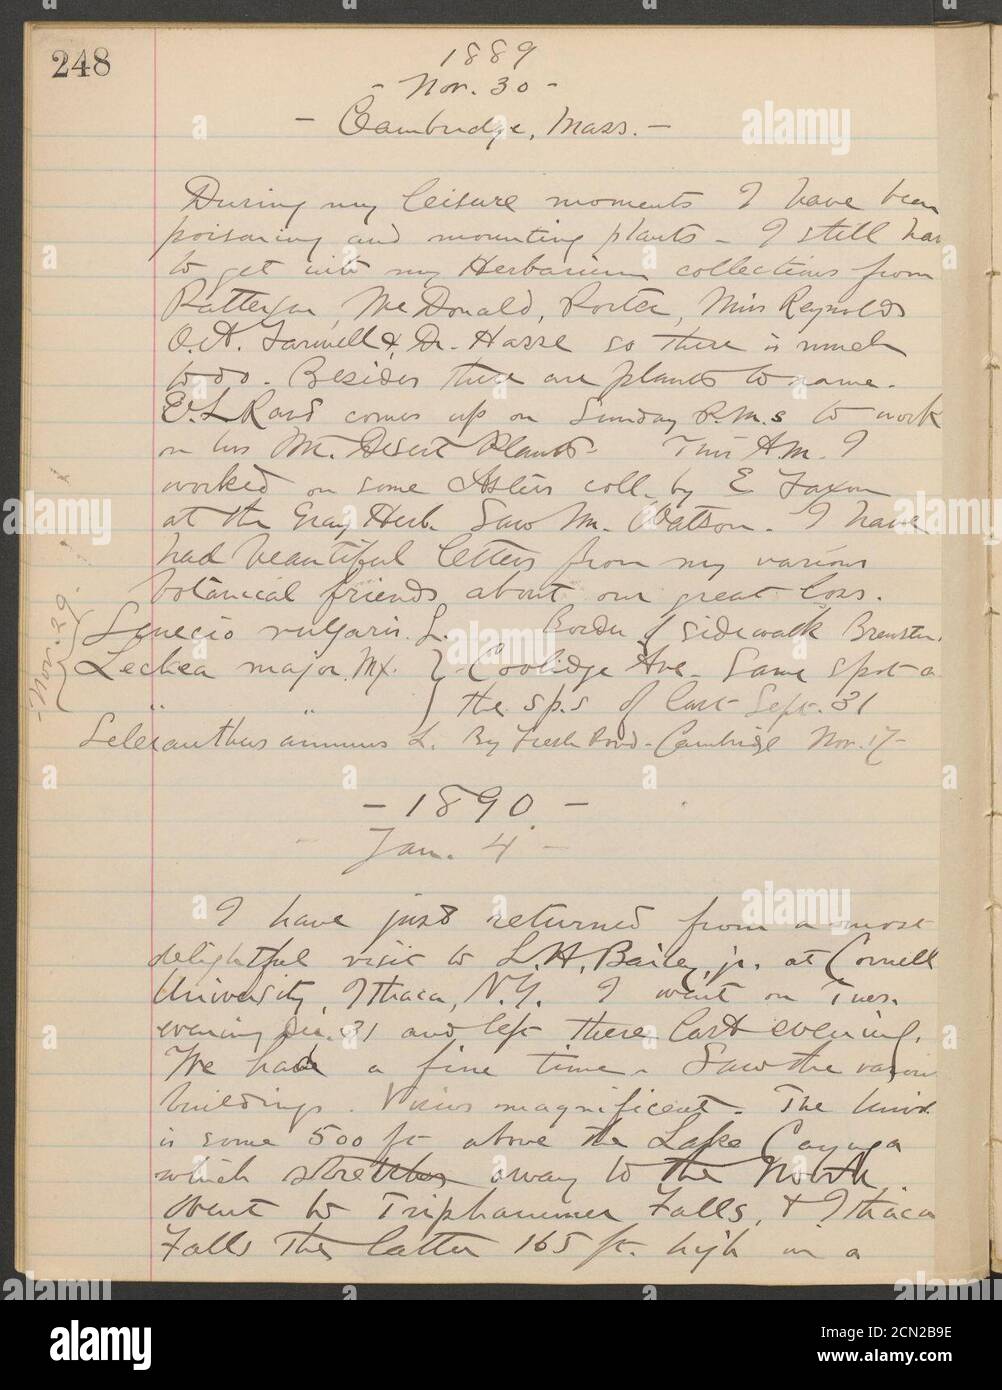 248
1889
- Nov. 30 -
- Cambridge, Mass. -
During my leisure moments I have been
poisoning and mounting plants - I still have
to get into my Herbarium collections from
Patterson, McDonald, Porter, Miss Reynolds
O.A. Farwell & Dr. Hasse so there is much
to do. Besides there are plants to name.
E.L. Rand comes up on Sunday P.M.s to work
on his Mt. Desert Plants. This A.M. I
worked on some Asters coll. by E Faxon
at the Gray Herb. Saw Mr. Watson. I have
had beautiful letters from my various
botanical friends about our great loss.
- Nov. 29.
Senecio vulgaris. L. Border of sidewalk Brewster.
Lechea major. Mx. } Coolidge Ave. Same spot a
" " the sp.s of last Sept. 31
Scleranthus annuus L. By Fresh Pond - Cambridge Nov. 17 -
- 1890 -
- Jan. 4 -
I have just returned from a most
delightful visit to L.H. Bailey, jr. at Cornell
University, Ithaca, N.Y. I went on Tues.
evening Dec. 31 and left there last evening.
We had a fine time. Saw the various
buildings. Views magnificent. The Univ.
is some 500 ft above the Lake Cayuga
which stretches away to the North.
Went to Triphammer Falls, & Ithaca
Falls the latter 165 ft. high in a
alamy
Image ID: 2CN2B9E
www.alamy.com